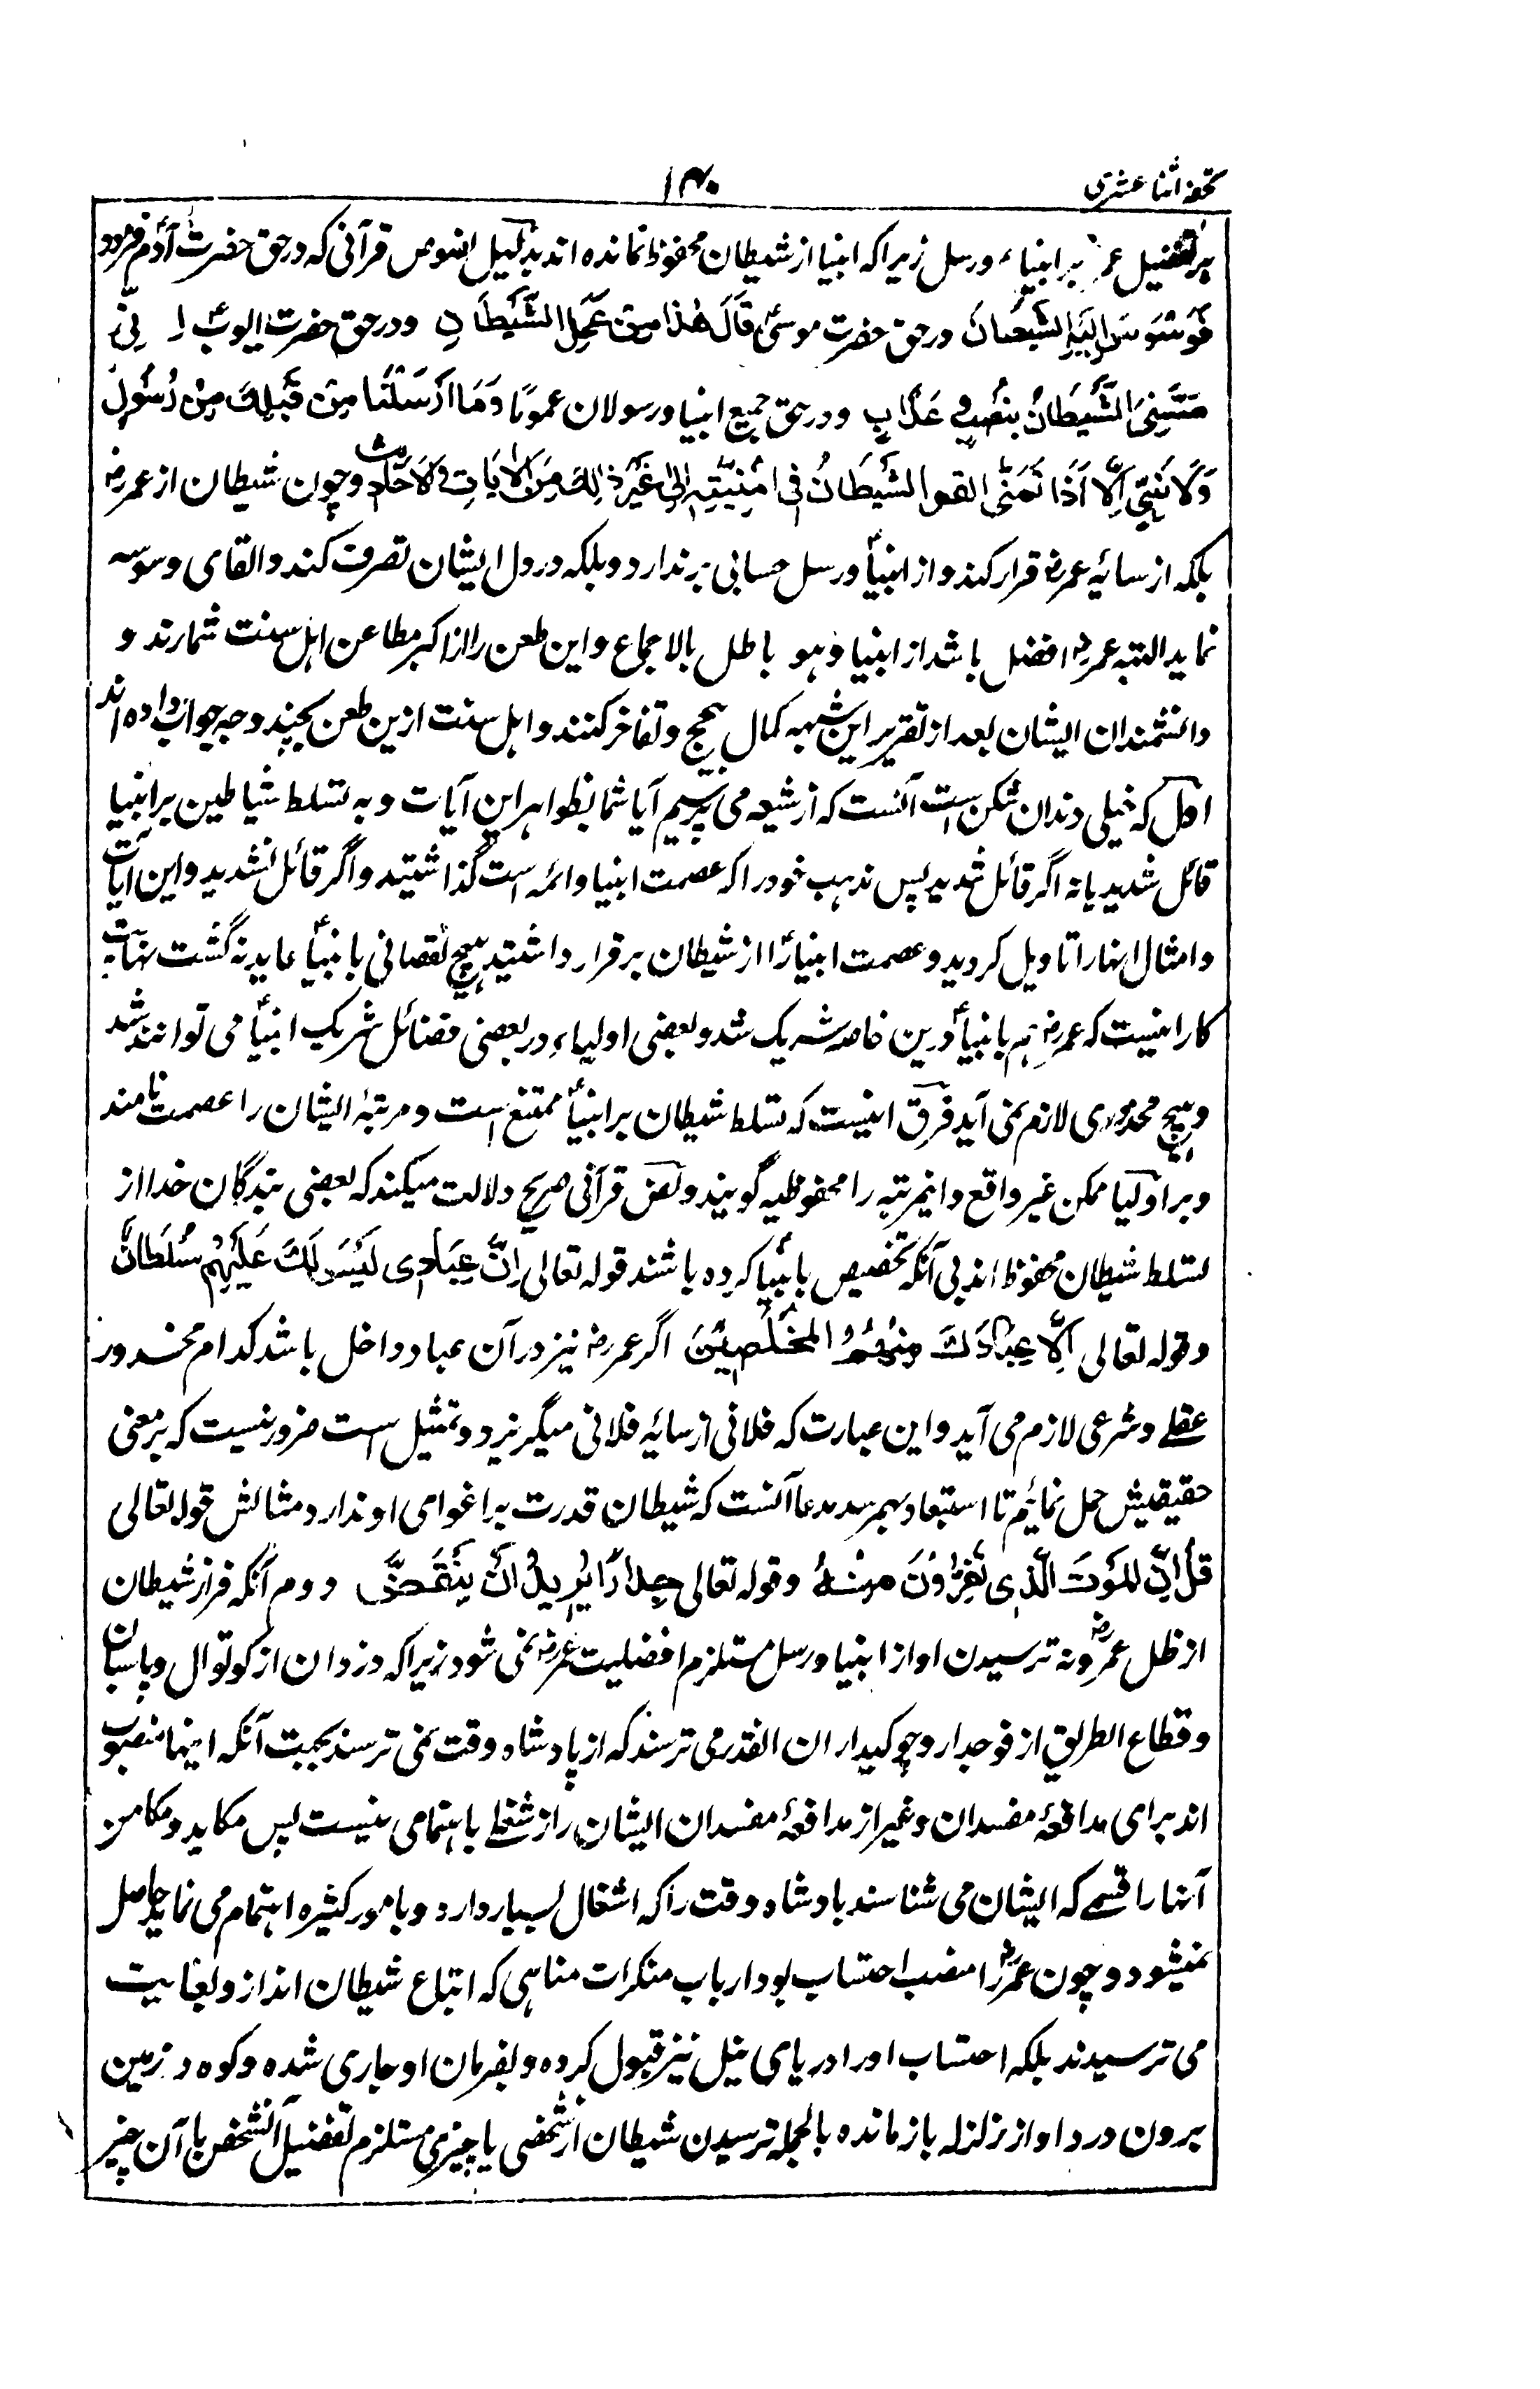 تحفه اثنا عشری
۱۴۰
بر تفضیل عمرؓ بر انبیاء ورسل زیرا که انبیا از شیطان محفوظ نمانده اند بدلیل نصوص قرآنی که در حق حضرت آدمؑ فرمود
فَوَسْوَسَ اِلَیْهِ الشَّیْطَانُ ودر حق حضرت موسیؑ قَالَ هٰذَا مِنْ عَمَلِ الشَّیْطَانِ ودر حق حضرت ایوبؑ اِنِّیْ
مَسَّنِیَ الشَّیْطَانُ بِنُصْبٍ وَّ عَذَابٍ ودر حق جمیع انبیا ورسولان عموماً وَمَا اَرْسَلْنَا مِنْ قَبْلِکَ مِنْ رَّسُوْلٍ
وَّلَا نَبِیٍّ اِلَّا اِذَا تَمَنّٰی القی الشَّیْطَانُ فِیْ اُمْنِیَّتِهٖ اِلٰی غَیْرِ ذٰلِکَ مِنَ الْاٰیَاتِ وَ الْاَحَادِیْث وچون شیطان از عمرؓ
بلکه از سایۀ عمرؓ فرار کند واز انبیاؑ ورسل حسابی برندارد وبلکه در دل ایشان تصرف کند والقای وسوسه
نماید البته عمرؓ افضل باشد از انبیا وهو باطل بالاجماع واین طعن را از اکبر مطاعن اهل سنت شمارند و
دانشمندان ایشان بعد از تقریر این شبهه کمال تبجح وتفاخر کنند واهل سنت ازین طعن بچند وجه جواب داده اند
اول که خیلی دندان شکن است آنست که از شیعه می پرسیم آیا شما بظواهر این آیات وبه تسلط شیاطین بر انبیا
قائل شدید یا نه اگر قائل شدید پس مذهب خود را که عصمت انبیا وائمه است گذاشتید واگر قائل نشدید واین آیات
وامثال اینها را تاویل کردید وعصمت انبیاؑ را از شیطان برقرار داشتید هیچ نقصانی بانبیاؑ عاید نه گشت نهایت
کار اینست که عمرؓ هم بانبیاؑ درین خاصه شریک شد وبعضی اولیاء در بعضی فضائل شریک انبیاؑ می توانند شد
وهیچ محذوری لازم نمی آید فرق اینست که تسلط شیطان بر انبیاؑ ممتنع است ومرتبۀ ایشان را عصمت نامند
وبر اولیا ممکن غیر واقع واینمرتبه را محفوظیه گویند ونص قرآنی صریح دلالت میکند که بعضی بندگان خدا از
تسلط شیطان محفوظ اند بی آنکه تخصیص بانبیاؑ کرده باشند قوله تعالی اِنَّ عِبَادِی لَیْسَ لَکَ عَلَیْهِمْ سُلْطَانٌ
وقوله تعالی اِلَّا عِبَادَکَ مِنْهُمُ الْمُخْلَصِیْنَ اگر عمرؓ نیز در آن عباد داخل باشد کدام محذور
عقلے وشرعی لازم می آید واین عبارت که فلانی از سایۀ فلانی میگریزد وتمثیل است ضرور نیست که بر معنی
حقیقیش حمل نمائیم تا استبعاد بهمرسد مدعا آنست که شیطان قدرت بر اغوای او ندارد مثالش قوله تعالی
قُلْ اِنَّ الْمَوْتَ الَّذِی تَفِرُّوْنَ مِنْهُ وقوله تعالی جِدَارًا یُّرِیْدُ اَنْ یَّنْقَضَّ دوم آنکه فرار شیطان
از ظل عمرؓ ونه ترسیدن او از انبیا ورسل مستلزم افضلیت عمرؓ نمی شود زیرا که دزدان از کوتوال وپاسبان
وقطاع الطریق از فوجدار وچوکیداران القدر می ترسند که از پادشاه وقت نمی ترسند بجهت آنکه اینها منصوب
اند برای مدافعۀ مفسدان وغیر از مدافعۀ مفسدان ایشان را از شغلے باهتمامی نیست پس مکاید ومکامن
آنها را قسمے که ایشان می شناسند بادشاه وقت را که اشغال بسیار دارد وبامور کثیره اهتمام می نماید حاصل
نمیشود وچون عمرؓ را منصب احتساب بود ارباب منکرات مناهی که اتباع شیطان اند از و بغایت
می ترسیدند بلکه احتساب اورا دریای نیل نیز قبول کرده وبفرمان او جاری شده وکوه و زمین
برون درد او از زلزله باز مانده بالجمله ترسیدن شیطان از شخصی یا چیزی مستلزم تفضیل آنشخص یا آن چیز